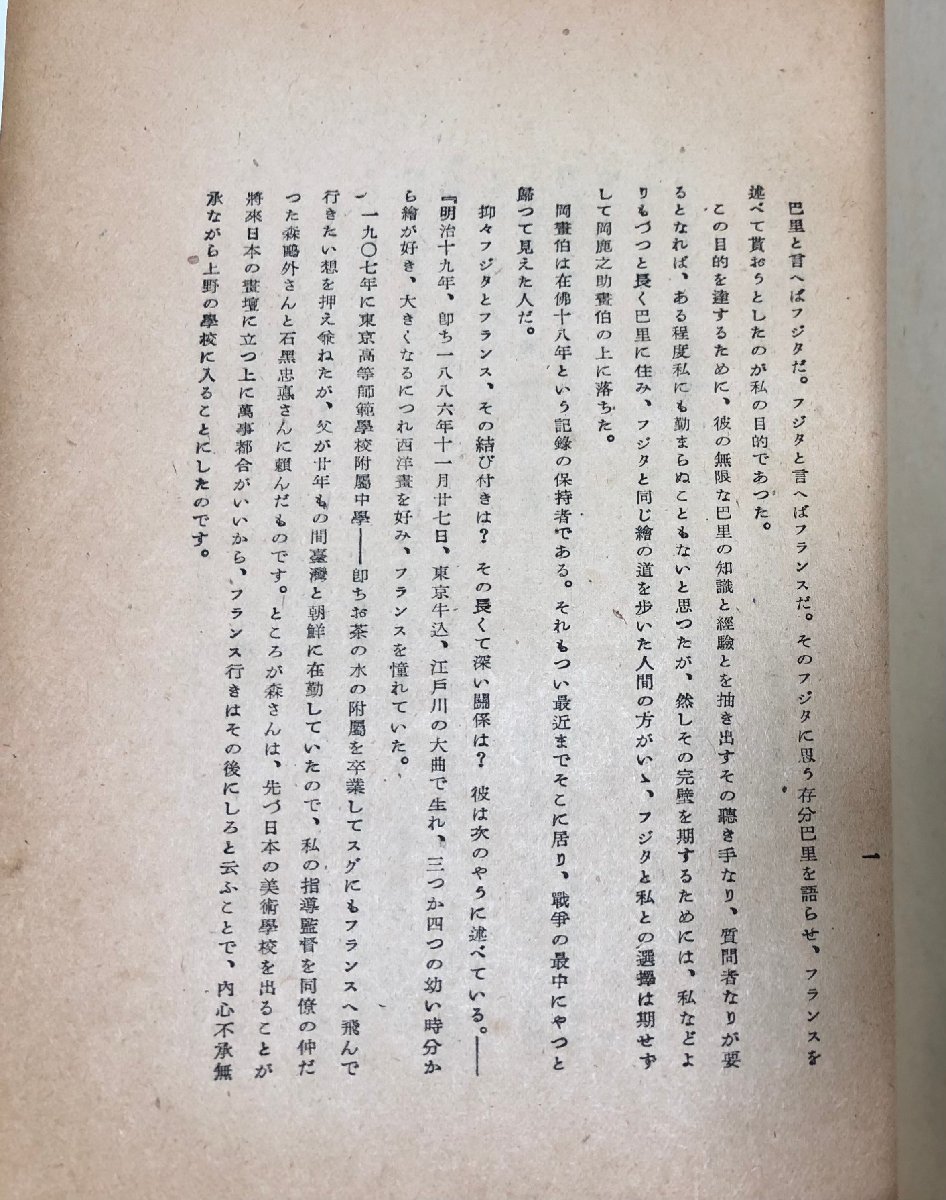 一
巴里と言へばフジタだ。フジタと言へばフランスだ。そのフジタに思う存分巴里を語らせ、フランスを
述べて貰おうとしたのが私の目的であつた。
この目的を達するために、彼の無限な巴里の知識と經驗とを抽き出すその聽き手なり、質問者なりが要
るとなれば、ある程度私にも勤まらぬこともないと思つたが、然しその完璧を期するためには、私などよ
りもづつと長く巴里に住み、フジタと同じ繪の道を歩いた人間の方がいゝ、フジタと私との選擇は期せず
して岡鹿之助畫伯の上に落ちた。
岡畫伯は在佛十八年という記錄の保持者である。それもつい最近までそこに居り、戰爭の最中にやつと
歸つて見えた人だ。
抑々フジタとフランス、その結び付きは？その長くて深い關係は？彼は次のやうに述べている。――
『明治十九年、卽ち一八八六年十一月廿七日、東京牛込、江戸川の大曲で生れ、三つか四つの幼い時分か
ら繪が好き、大きくなるにつれ西洋畫を好み、フランスを憧れていた。
一九〇七年に東京高等師範學校附屬中學――卽ちお茶の水の附屬を卒業してスグにもフランスへ飛んで
行きたい想を押え兼ねたが、父が廿年もの間臺灣と朝鮮に在勤していたので、私の指導監督を同僚の仲だ
つた森鷗外さんと石黑忠悳さんに賴んだものです。ところが森さんは、先づ日本の美術學校を出ることが
將來日本の畫壇に立つ上に萬事都合がいいから、フランス行きはその後にしろと云ふことで、內心不承無
承ながら上野の學校に入ることにしたのです。